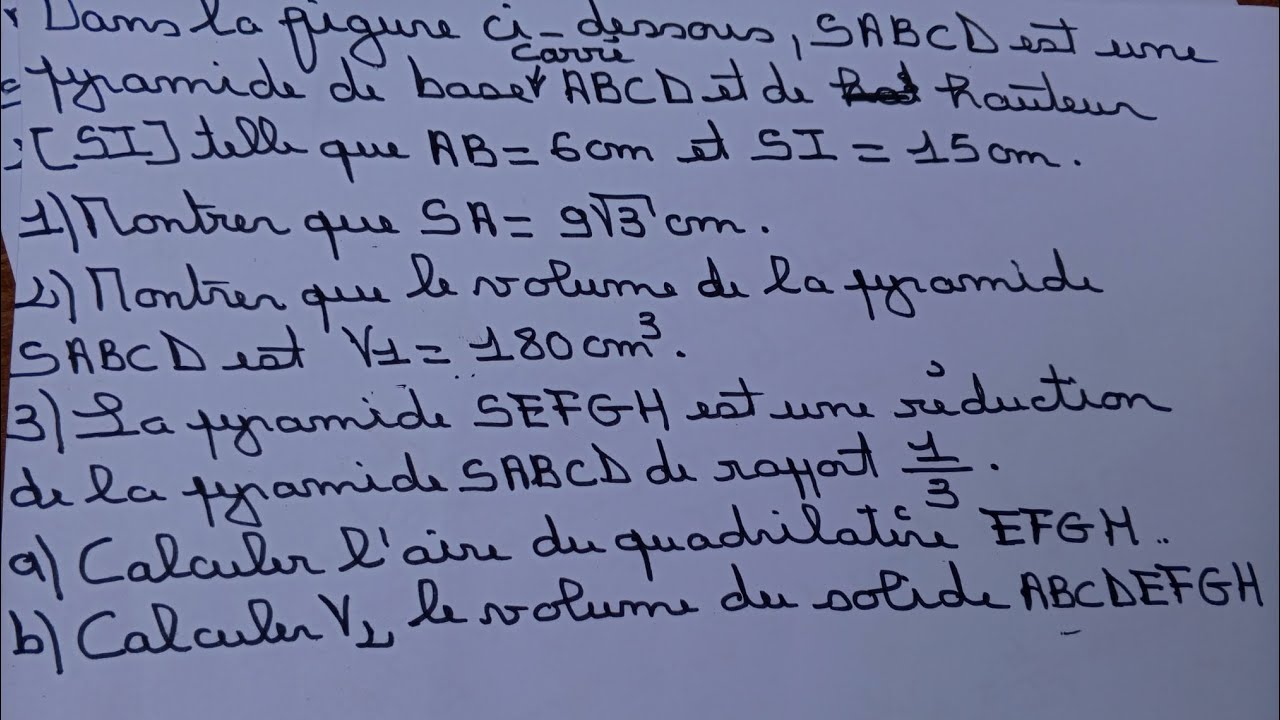 Dans la figure ci-dessous, SABCD est une
carré
pyramide de base ABCD et de hauteur
[SI] telle que AB = 6cm et SI = 15cm.
1) Montrer que SA = 9√3 cm.
2) Montrer que le volume de la pyramide
SABCD est V1 = 180cm³.
3) La pyramide SEFGH est une réduction
de la pyramide SABCD de rapport 1/3.
a) Calculer l'aire du quadrilatère EFGH..
b) Calculer V2 le volume du solide ABCDEFGH